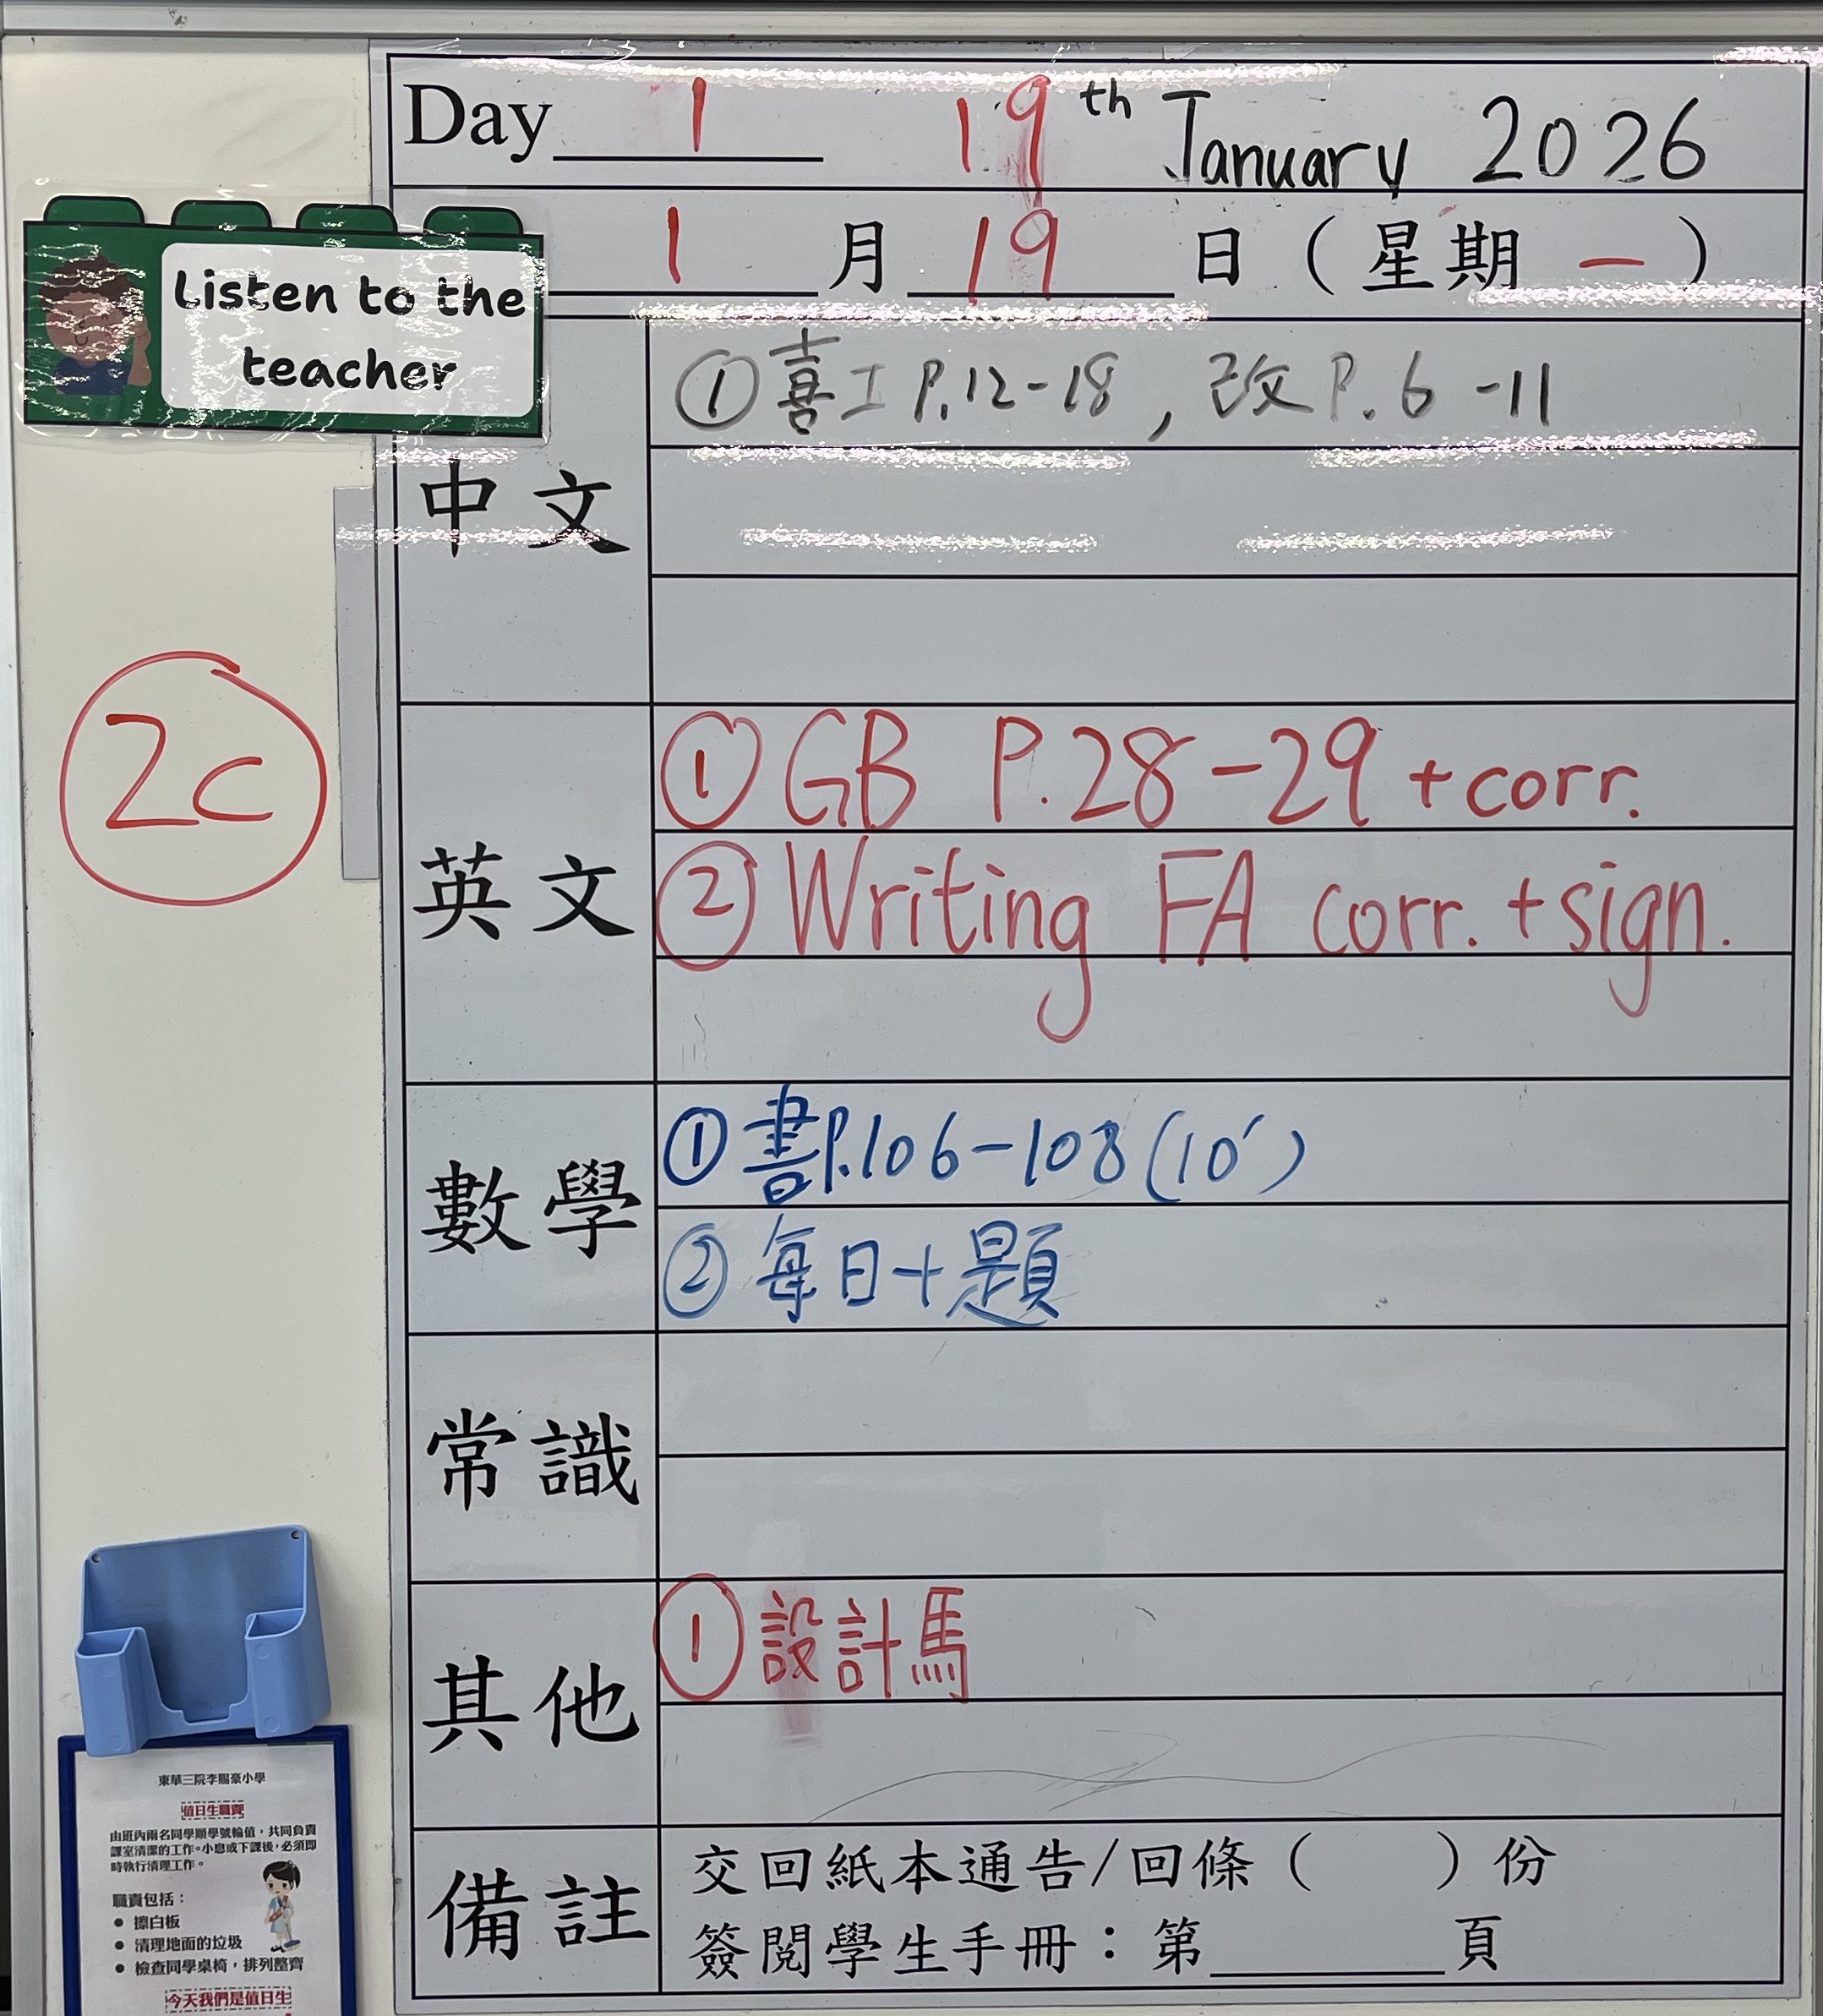 Day 1 19th January 2026
1 月 19 日 ( 星期 一 )
Listen to the
teacher
中文
① 喜工 P.12-18 , 改 P.6-11
2C
英文
① GB P.28-29 + corr.
② Writing FA corr. + sign.
數學
① 書P.106-108 (10')
② 每日十題
常識
其他
① 設計馬
備註
交回紙本通告/回條 ( ) 份
簽閱學生手冊：第______頁
東華三院李賜豪小學
值日生職責
由班內兩名同學順學號輪值，共同負責
課室清潔的工作。小息或下課後，必須即
時執行清理工作。
職責包括：
● 擦白板
● 清理地面的垃圾
● 檢查同學桌椅，排列整齊
今天我們是值日生